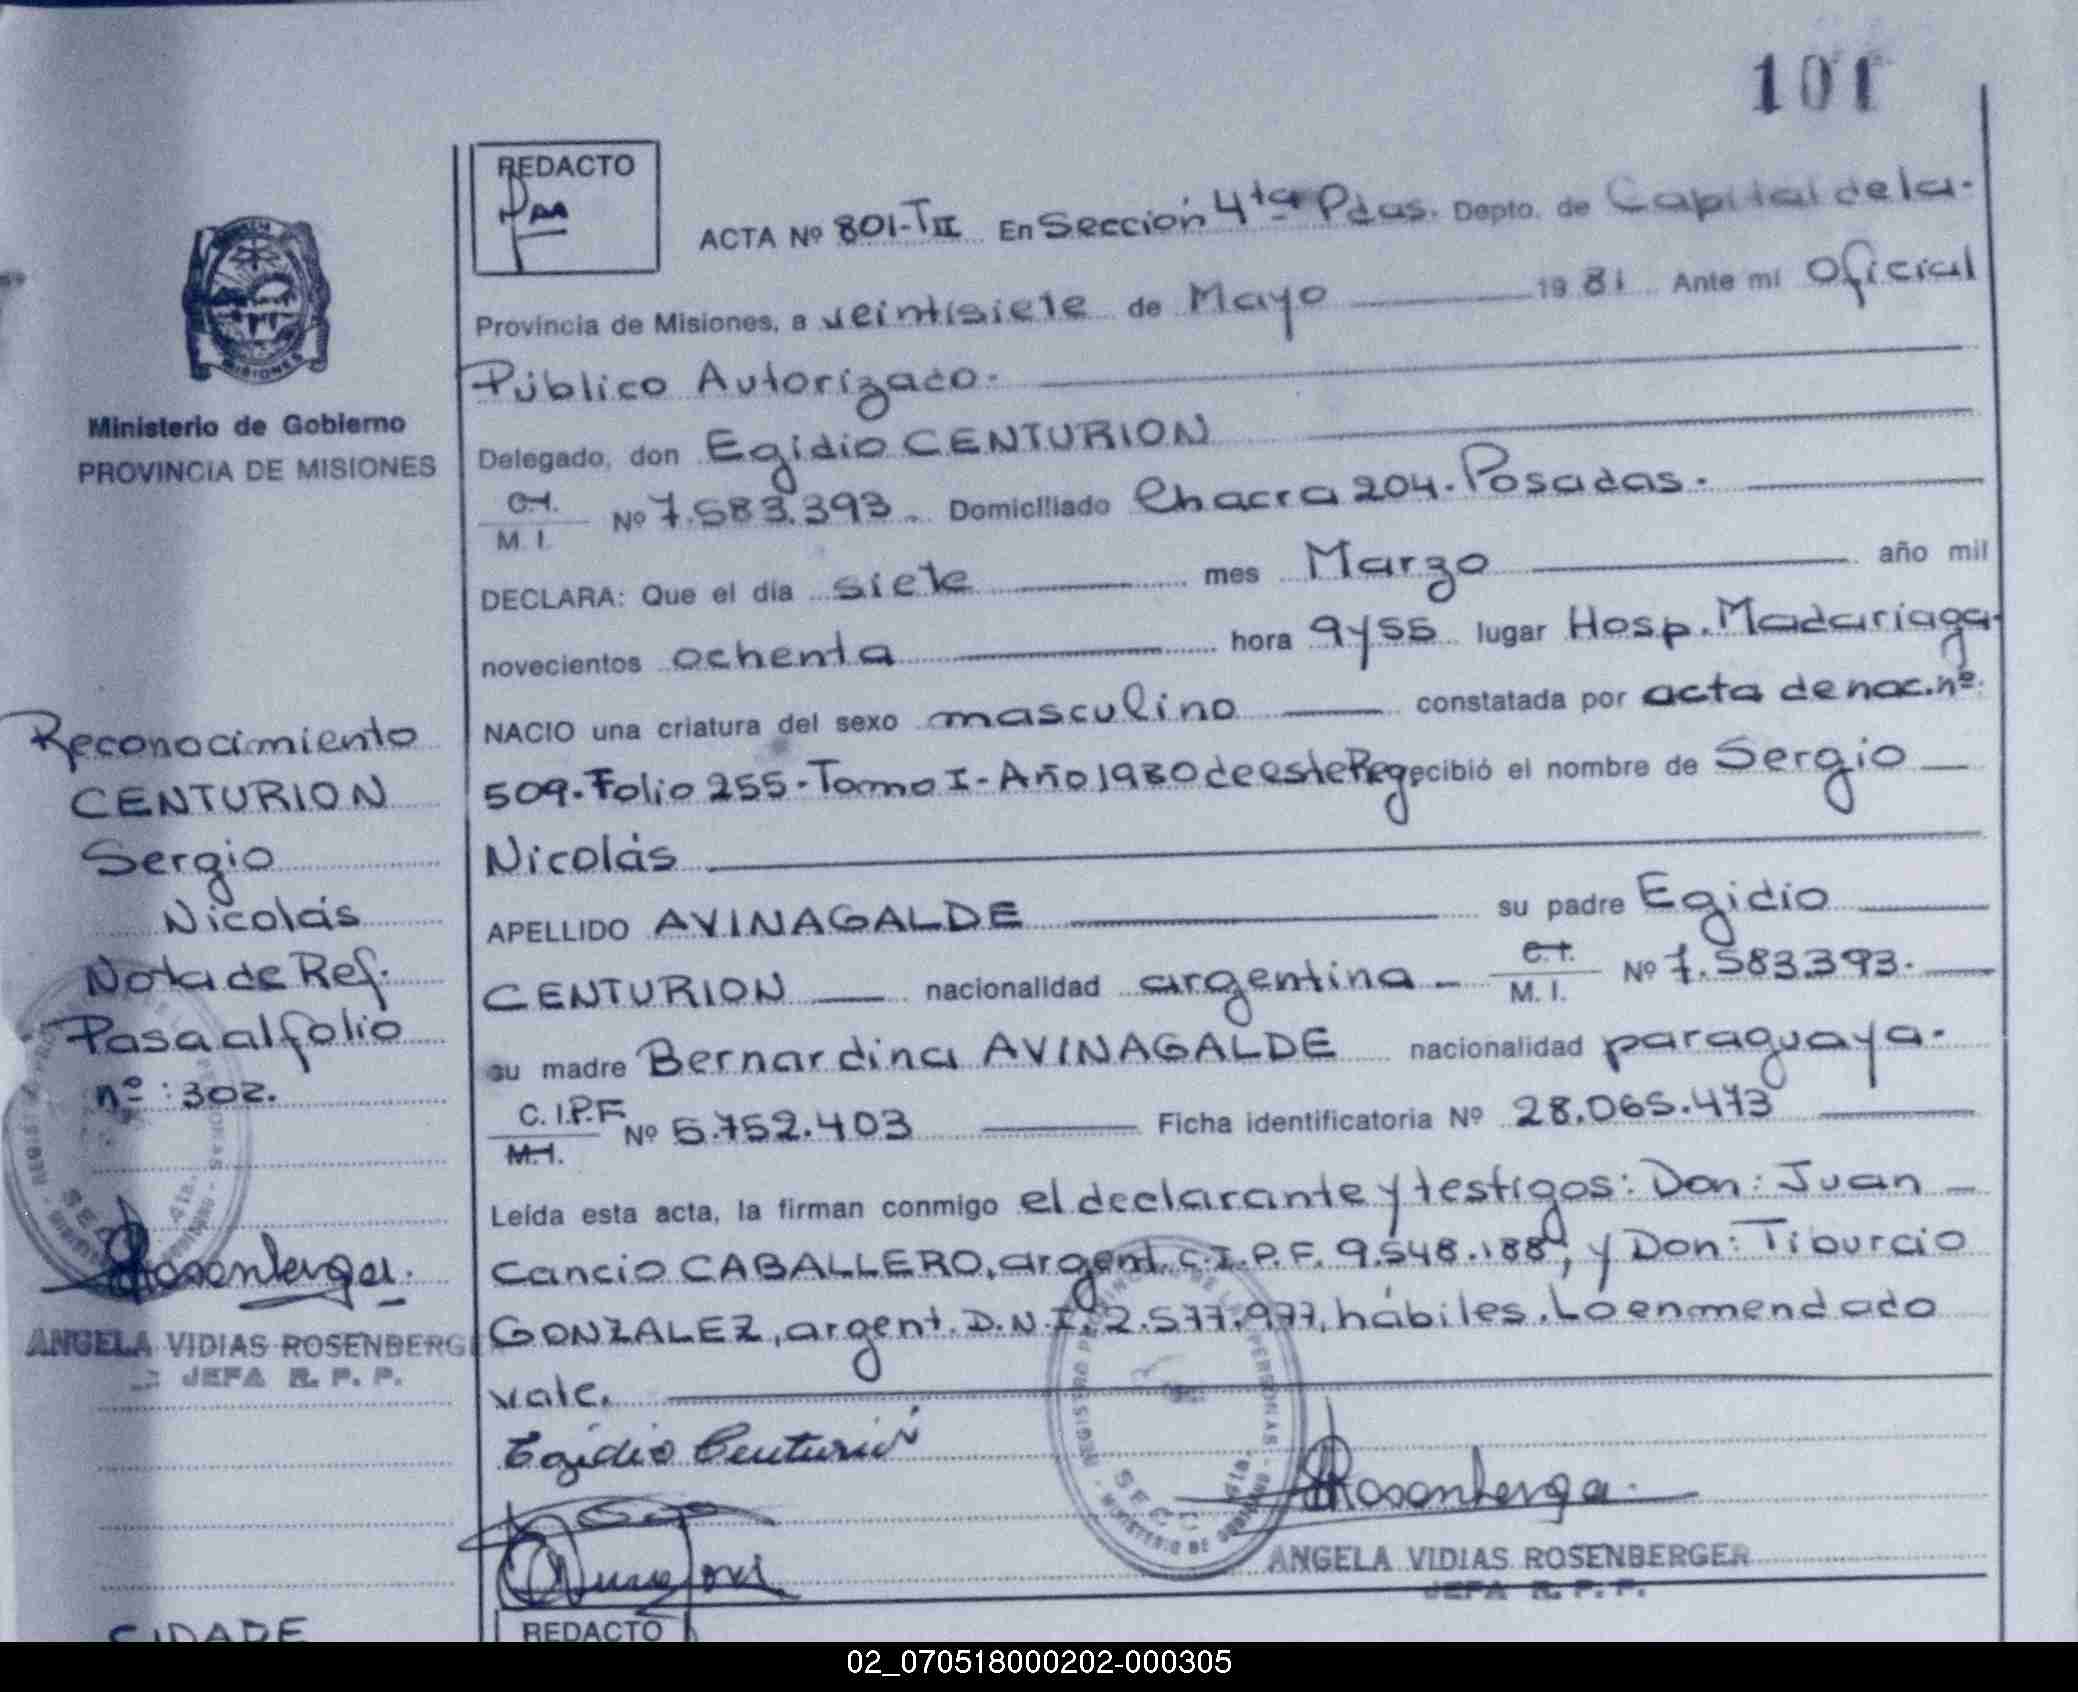 101
REDACTO
ACTA Nº 801-TII En Sección 4ta Pdas. Depto. de Capital de la.
Provincia de Misiones, a veintisiete de Mayo 1981 Ante mi Oficial
Público Autorizado.
Delegado, don Egidio CENTURION
C.I. M. I. Nº 7.583.393. Domiciliado Chacra 204. Posadas.
DECLARA: Que el día siete mes Marzo año mil
novecientos ochenta hora 9 y 55 lugar Hosp. Madariaga.
NACIO una criatura del sexo masculino constatada por acta de nac. nº
509. Folio 255 - Tomo I - Año 1980 de este Reg. recibió el nombre de Sergio
Nicolás
APELLIDO AVINAGALDE su padre Egidio
CENTURION nacionalidad argentina C.I. M. I. Nº 7.583.393.
su madre Bernardina AVINAGALDE nacionalidad paraguaya.
C. I.P.F. M.I. Nº 5.752.403 Ficha identificatoria Nº 28.065.473
Leída esta acta, la firman conmigo el declarante y testigos: Don: Juan
Cancio CABALLERO, argent. C.I.P.F. 9.548.188, y Don: Tiburcio
GONZALEZ, argent. D.N.I. 2.577.977, hábiles. Lo enmendado
vale.
Egidio Centurión
Rosenberga.
ANGELA VIDIAS ROSENBERGER
JEFA R. P. P.
MISIONES
Ministerio de Gobierno
PROVINCIA DE MISIONES
Reconocimiento
CENTURION
Sergio
Nicolás
Nota de Ref.
Pasa al folio
nº: 302.
Rosenberga.
ANGELA VIDIAS ROSENBERGE
JEFA R. P. P.
REDACTO
02_070518000202-000305